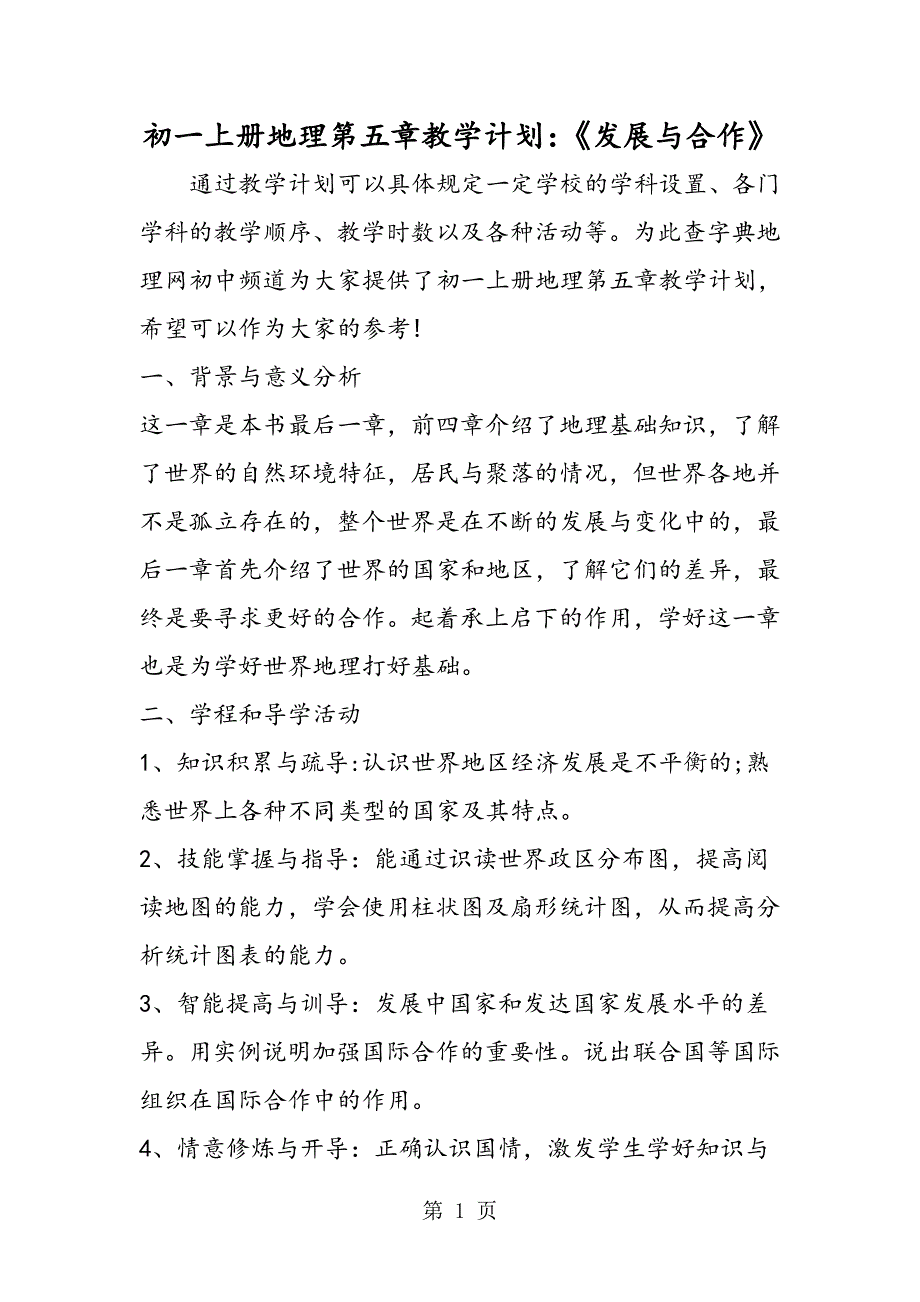 初一上册地理第五章教学计划：《发展与合作》
通过教学计划可以具体规定一定学校的学科设置、各门
学科的教学顺序、教学时数以及各种活动等。为此查字典地
理网初中频道为大家提供了初一上册地理第五章教学计划，
希望可以作为大家的参考！
一、背景与意义分析
这一章是本书最后一章，前四章介绍了地理基础知识，了解
了世界的自然环境特征，居民与聚落的情况，但世界各地并
不是孤立存在的，整个世界是在不断的发展与变化中的，最
后一章首先介绍了世界的国家和地区，了解它们的差异，最
终是要寻求更好的合作。起着承上启下的作用，学好这一章
也是为学好世界地理打好基础。
二、学程和导学活动
1、知识积累与疏导:认识世界地区经济发展是不平衡的;熟
悉世界上各种不同类型的国家及其特点。
2、技能掌握与指导：能通过识读世界政区分布图，提高阅
读地图的能力，学会使用柱状图及扇形统计图，从而提高分
析统计图表的能力。
3、智能提高与训导：发展中国家和发达国家发展水平的差
异。用实例说明加强国际合作的重要性。说出联合国等国际
组织在国际合作中的作用。
4、情意修炼与开导：正确认识国情，激发学生学好知识与
第 1 页